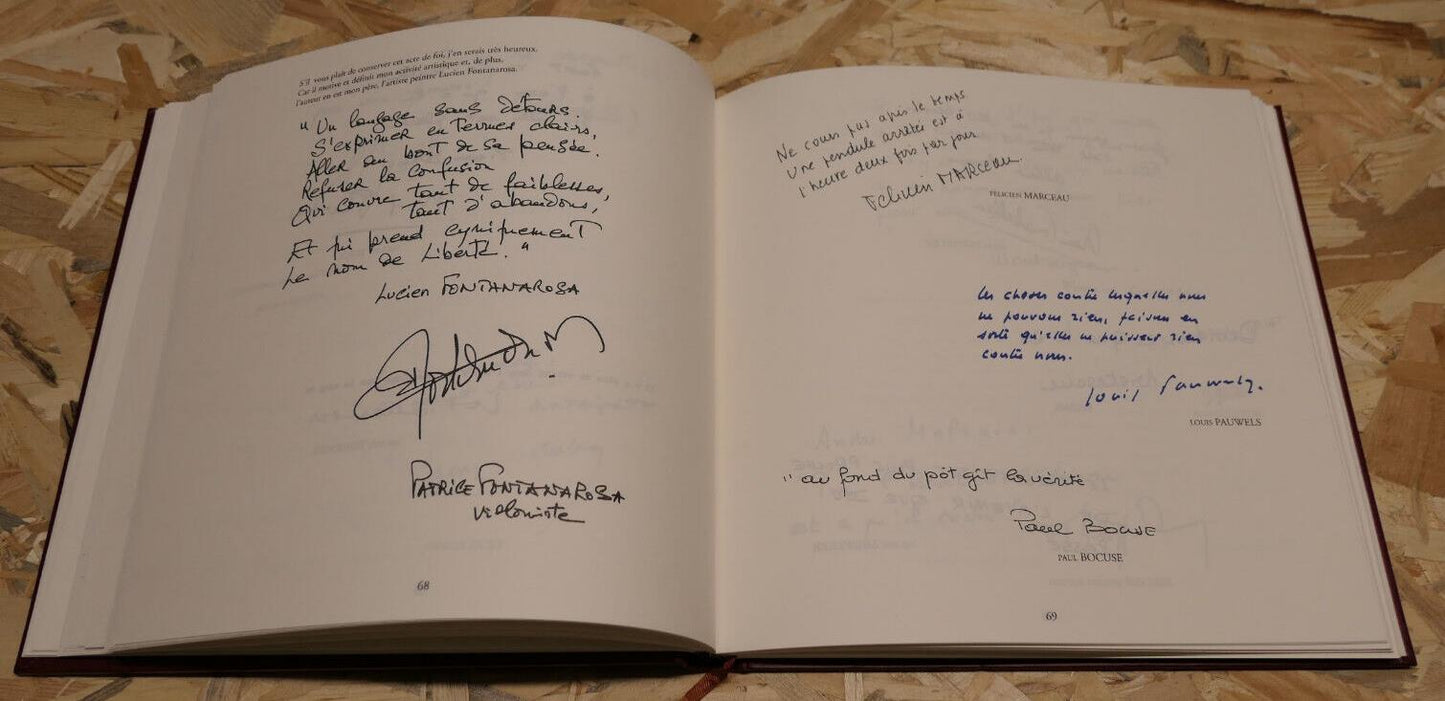 S'il vous plaît de conserver cet acte de foi, j'en serais très heureux.
Car il motive et définit mon activité artistique et, de plus,
l'auteur en est mon père, l'artiste peintre Lucien Fontanarosa.
"Un langage sans détours.
S'exprimer en Termes clairs,
Aller au bout de sa pensée.
Refuser la confusion
Qui couvre tant de faiblesses,
tant d'abandons,
Et qui prend cyniquement
Le nom de Liberté."
Lucien FONTANAROSA
PATRICE FONTANAROSA
violoniste
68
Ne cours pas après le temps
Une pendule arrêtée est à
l'heure deux fois par jour
Félicien MARCEAU.
FELICIEN MARCEAU
Les choses contre lesquelles nous
ne pouvons rien, faisons en
sorte qu'elles ne puissent rien
contre nous.
Louis Pauwels.
LOUIS PAUWELS
"au fond du pot gît la vérité
Paul BOCUSE
PAUL BOCUSE
69